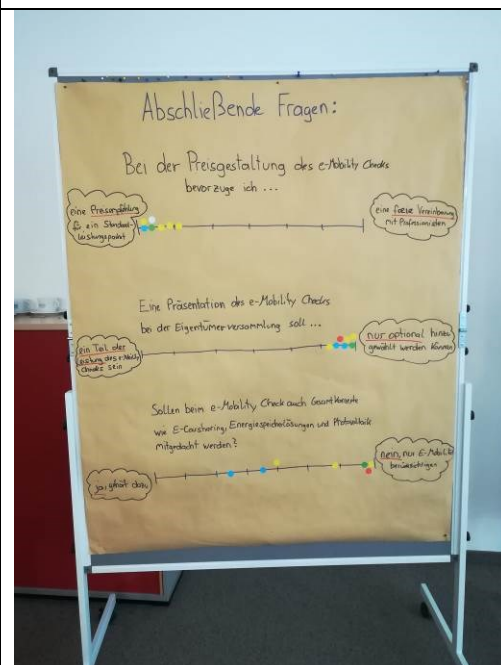 Abschließende Fragen:
Bei der Preisgestaltung des e-Mobility Checks
bevorzuge ich ...
eine Preisempfehlung
für ein Standard-
leistungspaket
eine freie Vereinbarung
mit Professionisten
Eine Präsentation des e-Mobility Checks
bei der Eigentümerversammlung soll ...
ein Teil der
Leistung des e-Mobility
Checks sein
nur optional hinzu
gewählt werden können
Sollen beim e-Mobility Check auch Gesamtkonzepte
wie E-Carsharing, Energiespeicherlösungen und Photovoltaik
mitgedacht werden?
ja, gehört dazu
nein, nur E-Mobilität
berücksichtigen